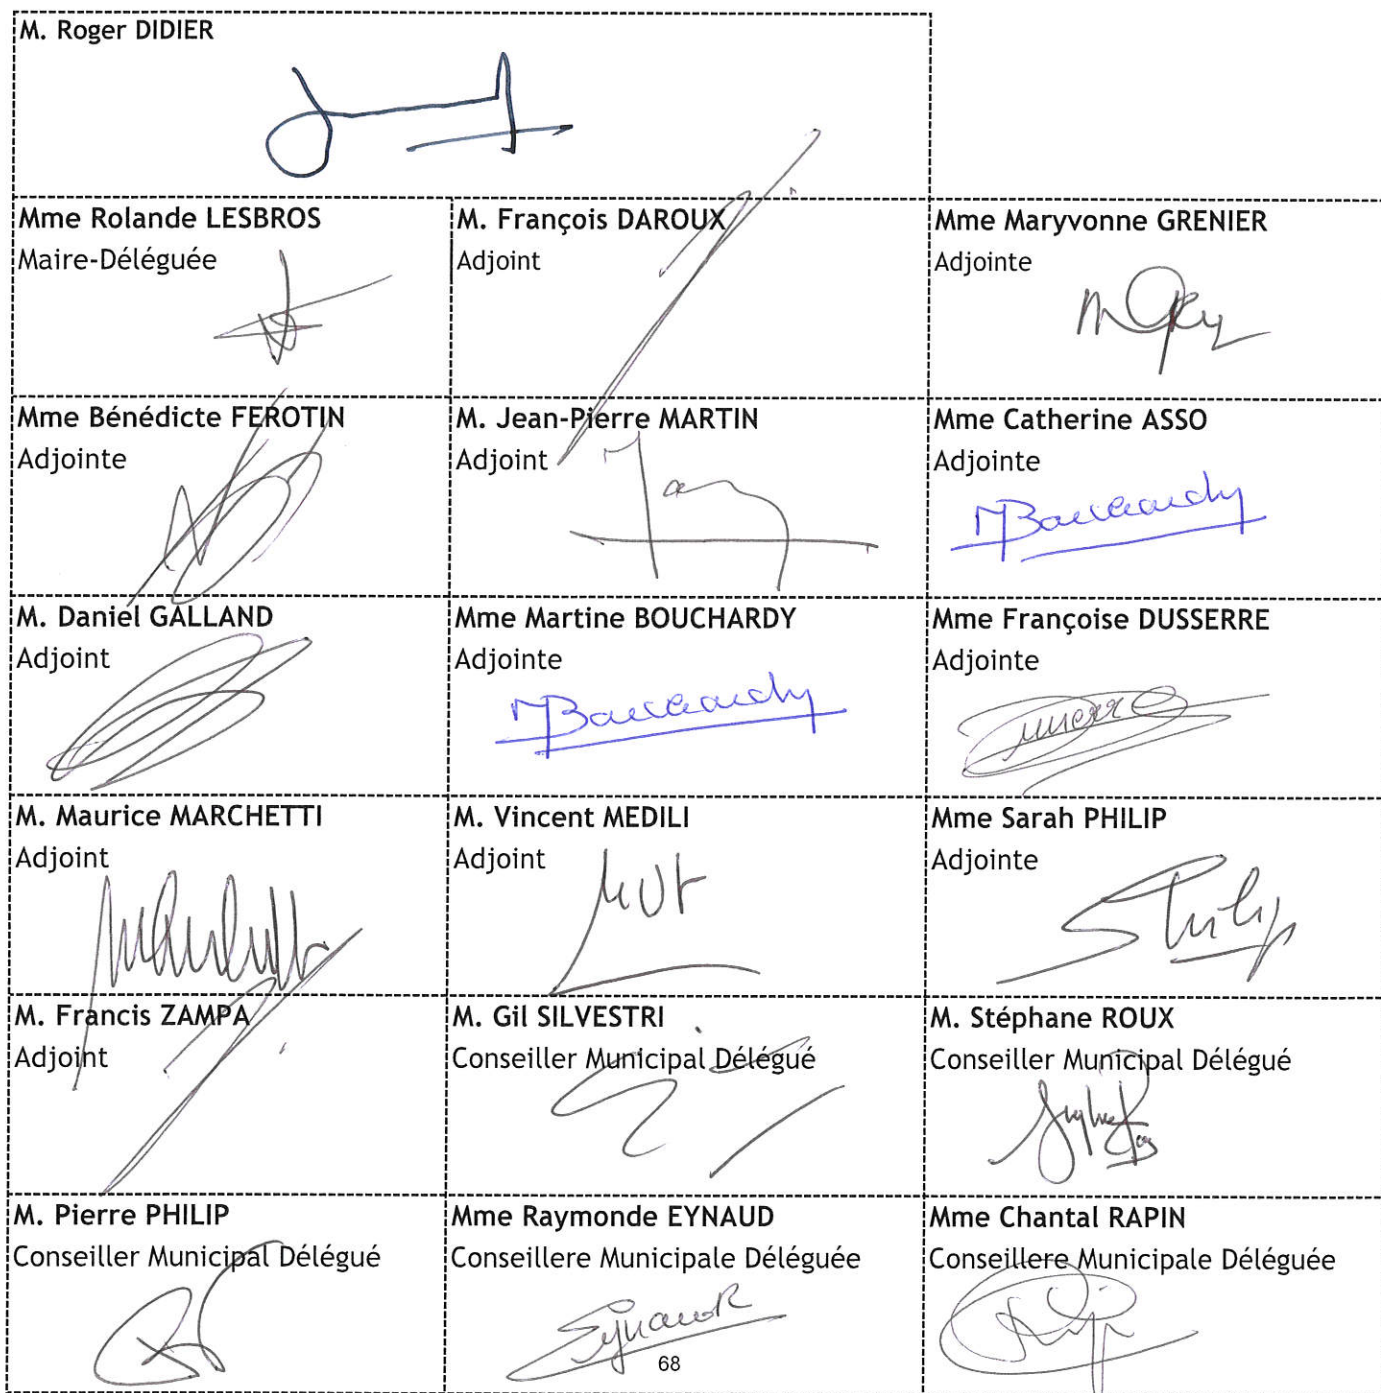 M. Roger DIDIER
Mme Rolande LESBROS
Maire-Déléguée
M. François DAROUX
Adjoint
Mme Maryvonne GRENIER
Adjointe
Mme Bénédicte FEROTIN
Adjointe
M. Jean-Pierre MARTIN
Adjoint
Mme Catherine ASSO
Adjointe
MBouchardy
M. Daniel GALLAND
Adjoint
Mme Martine BOUCHARDY
Adjointe
MBouchardy
Mme Françoise DUSSERRE
Adjointe
M. Maurice MARCHETTI
Adjoint
M. Vincent MEDILI
Adjoint
Mme Sarah PHILIP
Adjointe
SPhilip
M. Francis ZAMPA
Adjoint
M. Gil SILVESTRI
Conseiller Municipal Délégué
M. Stéphane ROUX
Conseiller Municipal Délégué
M. Pierre PHILIP
Conseiller Municipal Délégué
Mme Raymonde EYNAUD
Conseillere Municipale Déléguée
EynaudR
Mme Chantal RAPIN
Conseillere Municipale Déléguée
68